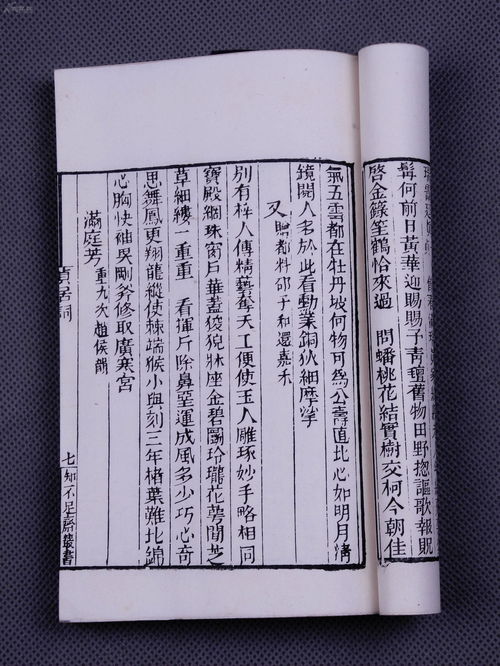 何前日黃華迎賜賜子靑氊舊物田野揔謳歌報貺
啓金籙笙鶴恰來過 問蟠桃花結實樹交柯今朝佳
氣五雲都在牡丹坡何物可爲公壽直比心如明月淸
鏡開人名於此看勳業銅狄細摩挲
又 贈都料邵子和還嘉禾
別有梓人傳精藝奪天工便使玉人雕琢妙手略相同
寶殿網珠窗戶華蓋狻猊牀座金碧鬭玲瓏花萼閒芝
草細縷一重重 看揮斤除鼻堊運成風多少巧心奇
思舞鳳更翔龍縱使棘端猴小與刻三年楮葉難比錦
心胸快袖吳剛斧修取廣寒宮
滿庭芳 重九次趙侯韻
貞居詞 七 知不足齋叢書